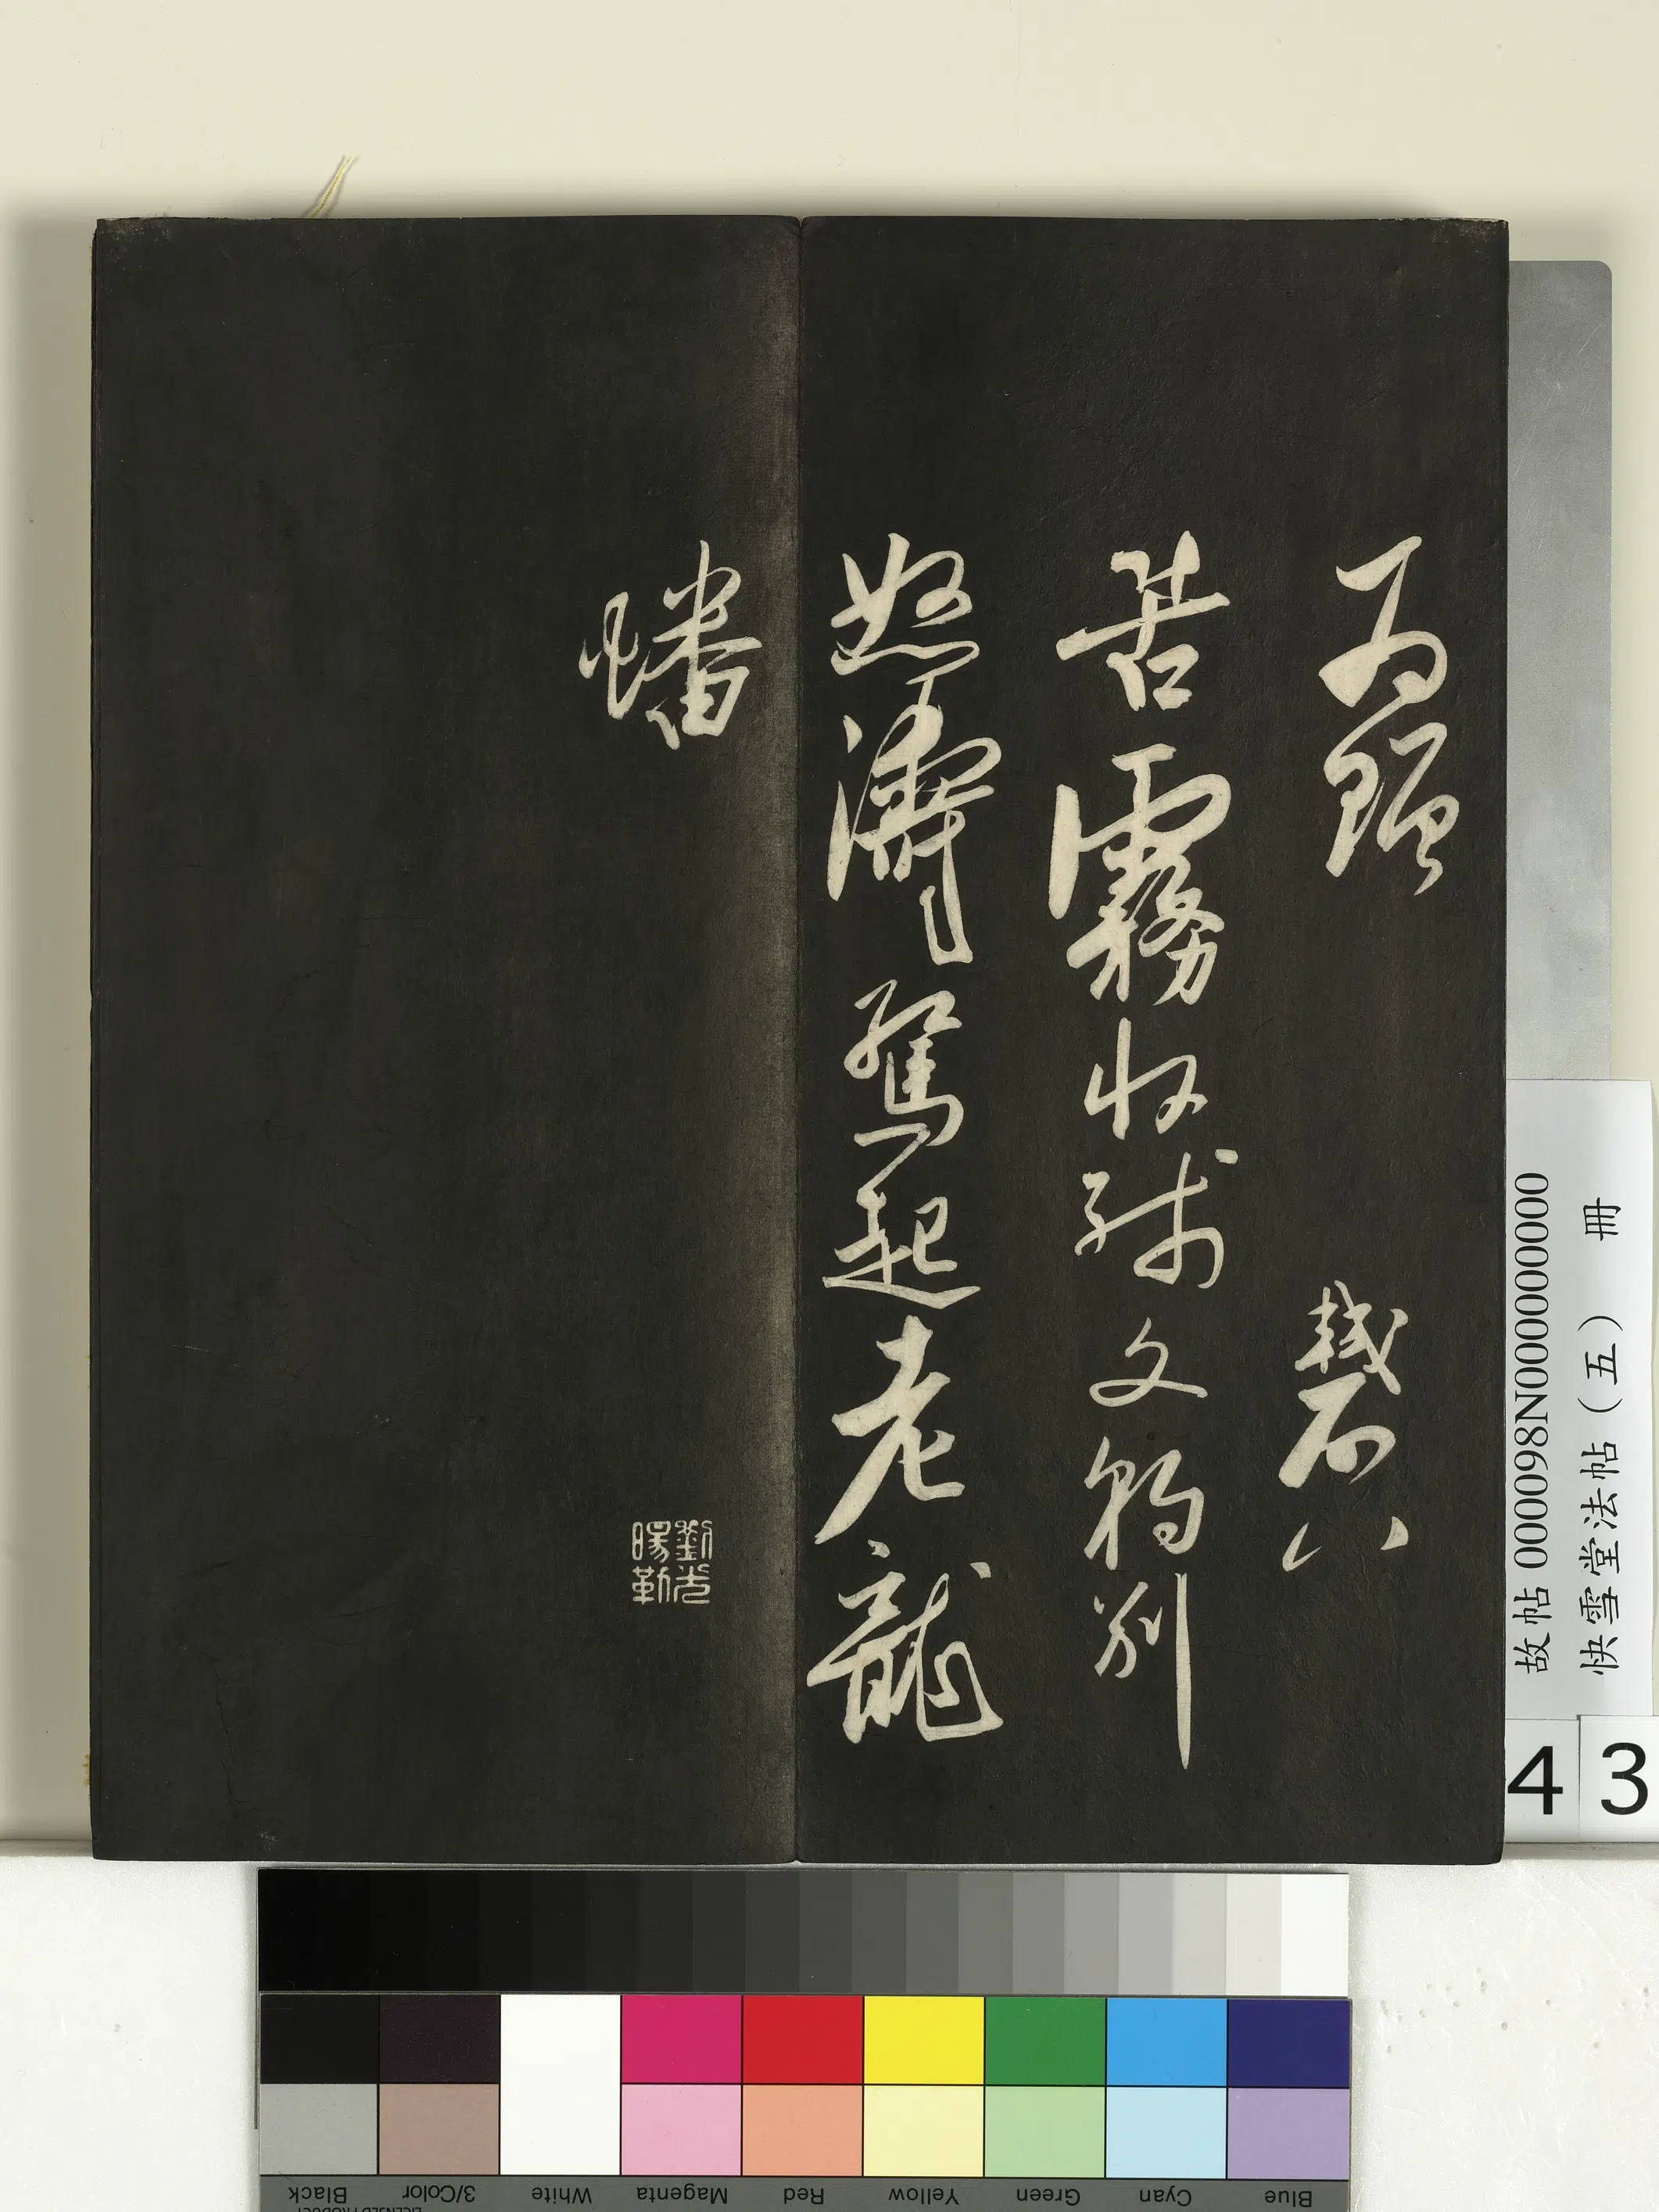 黻
苦霧收殘文豹別
怒濤驚起老龍
蟠
劉光
暘勒
故帖 000098N000000000
快雪堂法帖（五） 冊
4 3
Blue Cyan Green Yellow Red Magenta White 3/Color Black